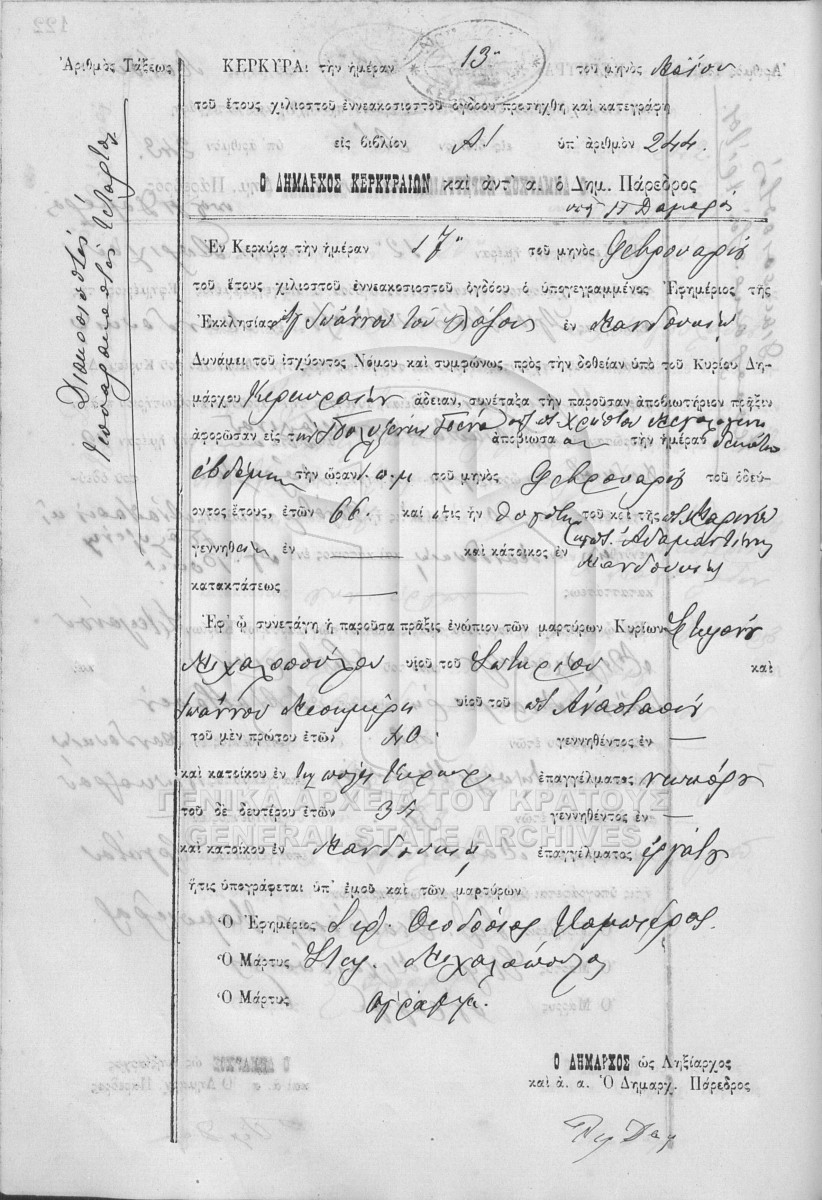 Ἀριθμὸς Τάξεως
ΚΕΡΚΥΡΑι τὴν ἡμέραν 13ην τοῦ μηνὸς Μαΐου
τοῦ ἔτους χιλιοστοῦ ἐννεακοσιοστοῦ ὀγδόου προσήχθη καὶ κατεγράφη
εἰς βιβλίον Α/ ὑπ' ἀριθμὸν 244.
Ο ΔΗΜΑΡΧΟΣ ΚΕΡΚΥΡΑΙΩΝ καὶ ἀντ' α. ὁ Δημ. Πάρεδρος
Ἐν Κερκύρᾳ τὴν ἡμέραν 17ην τοῦ μηνὸς Φεβρουαρίου
τοῦ ἔτους χιλιοστοῦ ἐννεακοσιοστοῦ ὀγδόου ὁ ὑπογεγραμμένος Ἐφημέριος τῆς
Ἐκκλησίας Ἁγ Ἰωάννου τοῦ Λάζου ἐν Μανδουκίῳ
Δυνάμει τοῦ ἰσχύοντος Νόμου καὶ συμφώνως πρὸς τὴν δοθεῖαν ὑπὸ τοῦ Κυρίου Δη-
μάρχου Κερκυραίων ἄδειαν, συνέταξα τὴν παροῦσαν ἀποβιωτήριον πρᾶξιν
ἀφορῶσαν εἰς τὴν Πολυξένην ἀποβιώσασαν τὴν ἡμέραν δεκάτην
ἑβδόμην τὴν ὥραν 1. π. μ τοῦ μηνὸς Φεβρουαρίου τοῦ ὁδεύ-
οντος ἔτους, ἐτῶν 66. καὶ ἥτις ἦν θυγάτηρ τοῦ καὶ τῆς ποτ Μαρίνου
καὶ ποτ. Ἀδαμαντίνης
γεννηθεῖσα ἐν — καὶ κάτοικος ἐν Μανδουκίῳ
κατακτάσεως —
Ἐφ' ᾧ συνετάγη ἡ παροῦσα πρᾶξις ἐνώπιον τῶν μαρτύρων Κυρίων Στυλιανοῦ
Μιχαλοπούλου υἱοῦ τοῦ Σωτηρίου καὶ
Ἰωάννου Μεσημέρη υἱοῦ τοῦ ποτ Ἀναστασίου
τοῦ μὲν πρώτου ἐτῶν 40. γεννηθέντος ἐν —
καὶ κατοίκου ἐν τῇ πόλει Κερκύρ ἐπαγγέλματος
ΓΕΝΙΚΑ ΑΡΧΕΙΑ ΤΟΥ ΚΡΑΤΟΥΣ
τοῦ δὲ δευτέρου ἐτῶν 35 γεννηθέντος ἐν —
GENERAL STATE ARCHIVES
καὶ κατοίκου ἐν Μανδουκίῳ ἐπαγγέλματος ἐργάτου
ἥτις ὑπογράφεται ὑπ' ἐμοῦ καὶ τῶν μαρτύρων
Ὁ Ἐφημέριος Θεοδόσιος
Ὁ Μάρτυς Στυλ. Μιχαλόπουλος
Ὁ Μάρτυς ἀγράμμ.
Ο ΔΗΜΑΡΧΟΣ ὡς Ληξίαρχος
καὶ ἀ. α. Ὁ Δημαρχ. Πάρεδρος